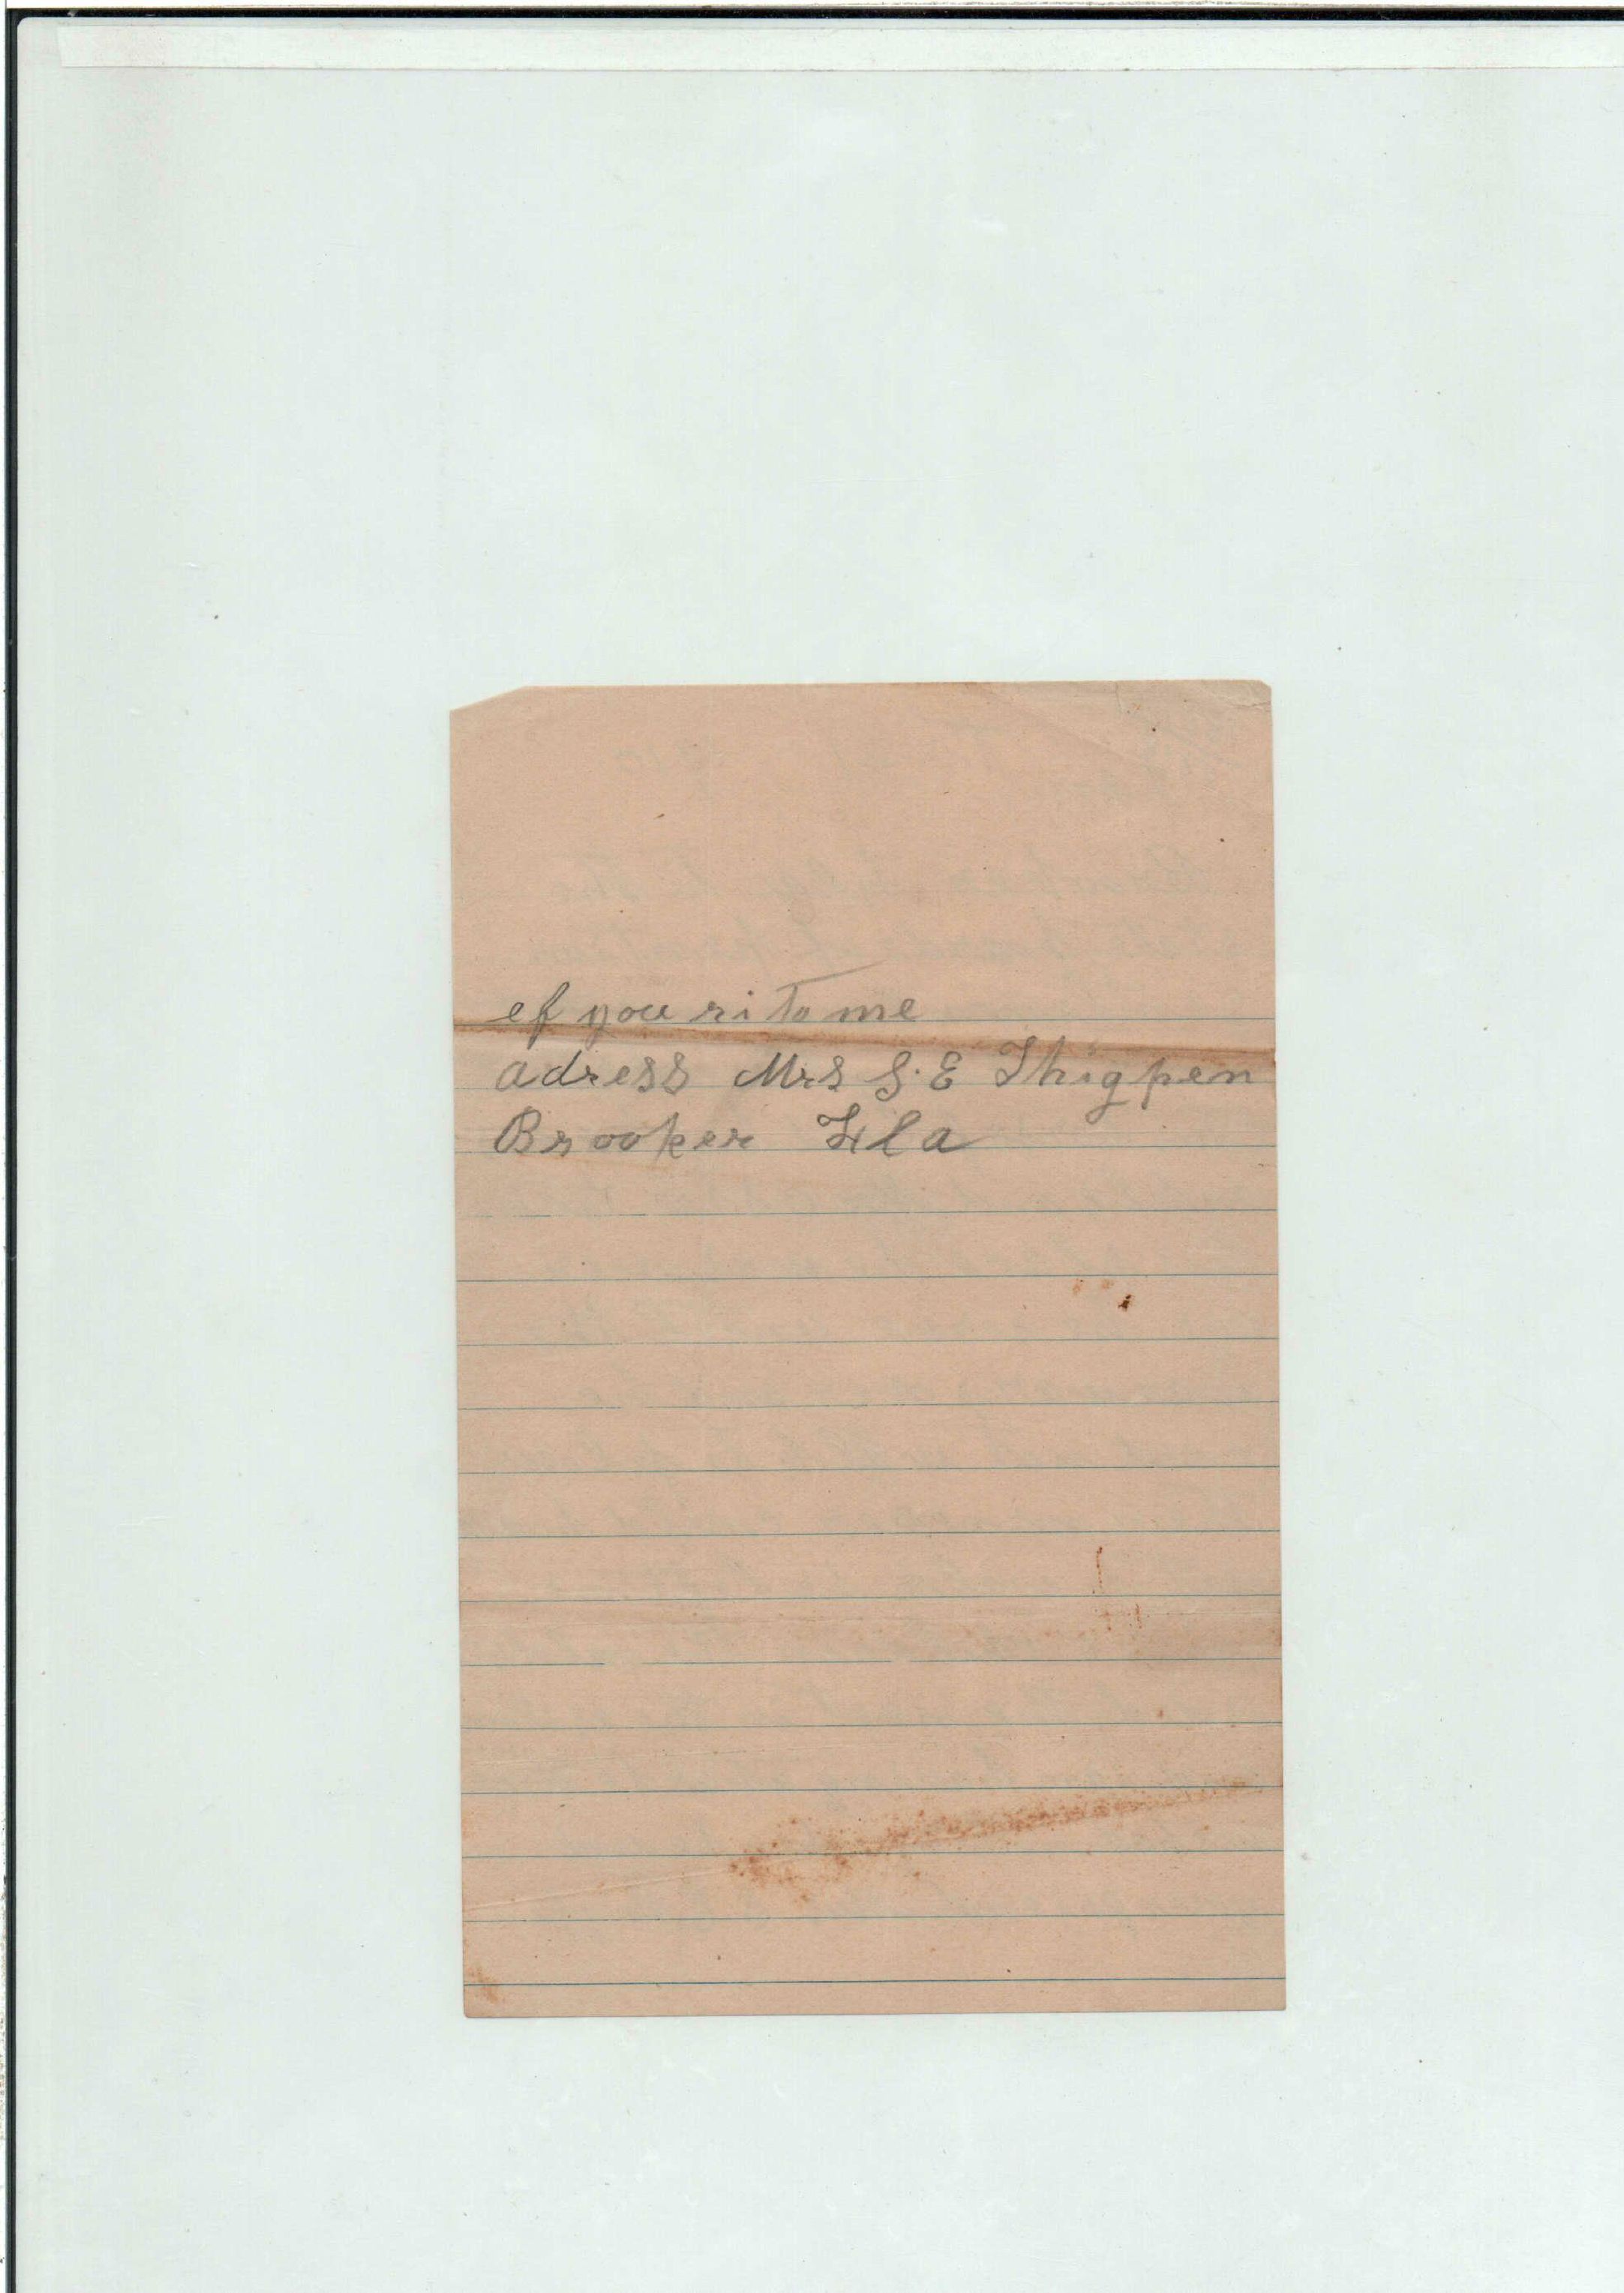 ef you ri to me
adress Mrs S. E Thigpen
Brooker Fla